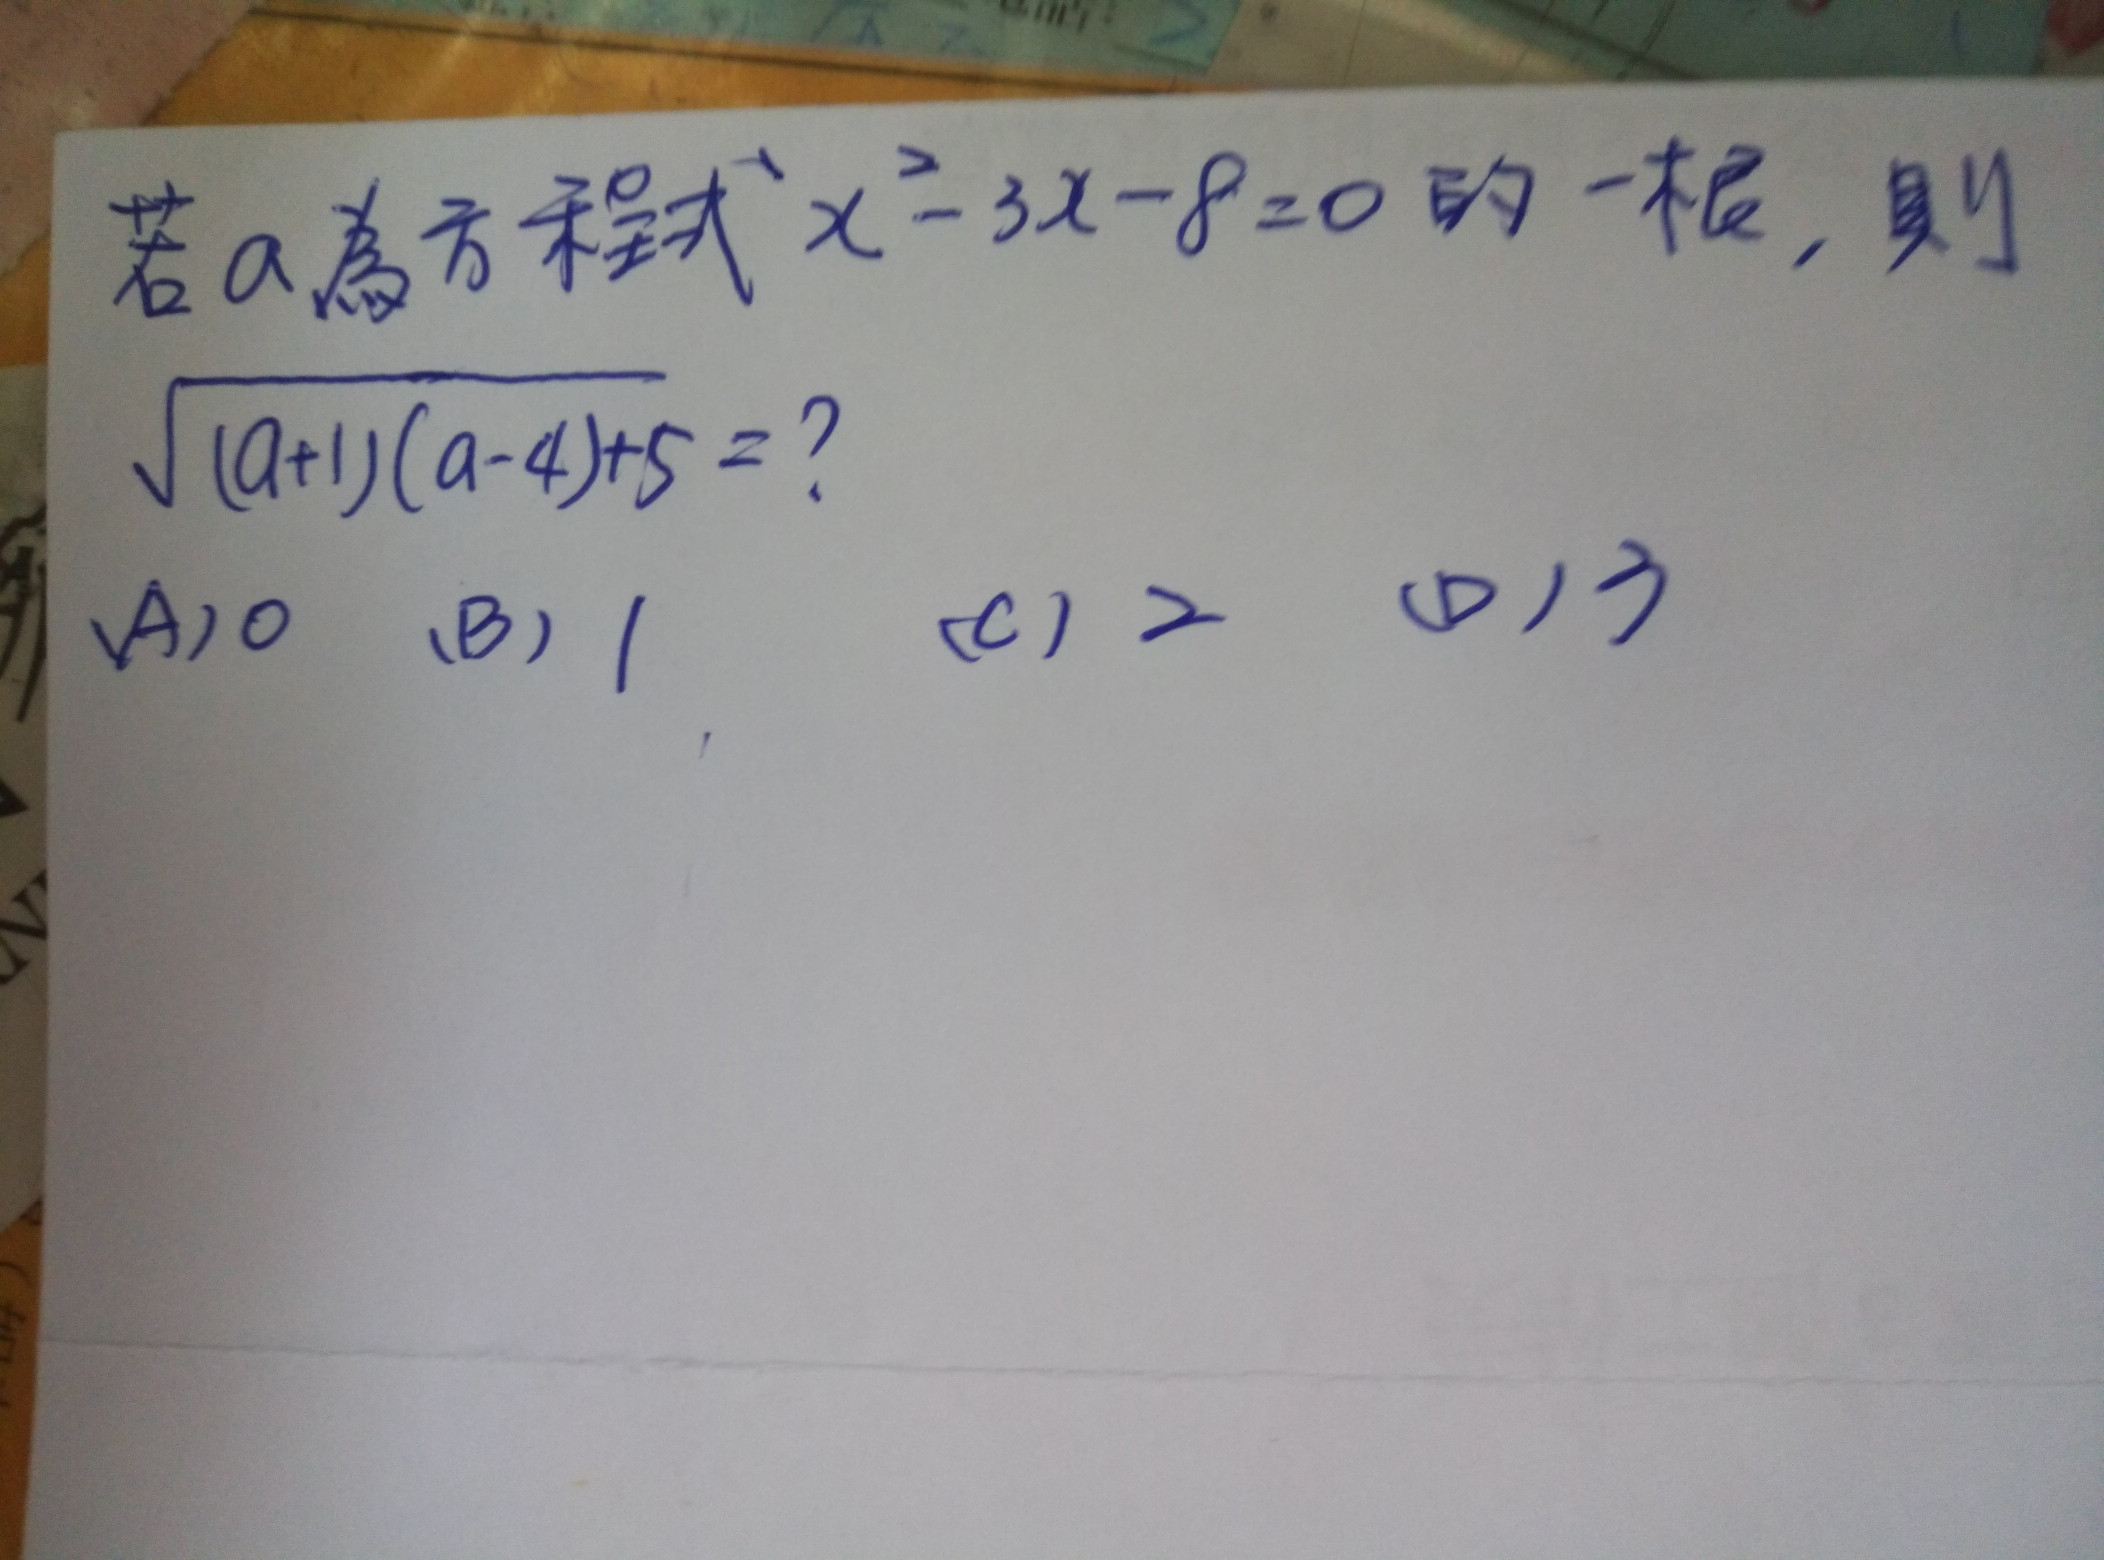 若a為方程式x²-3x-8=0的一根,則
√(a+1)(a-4)+5=?
(A)0 (B)1 (C)2 (D)3